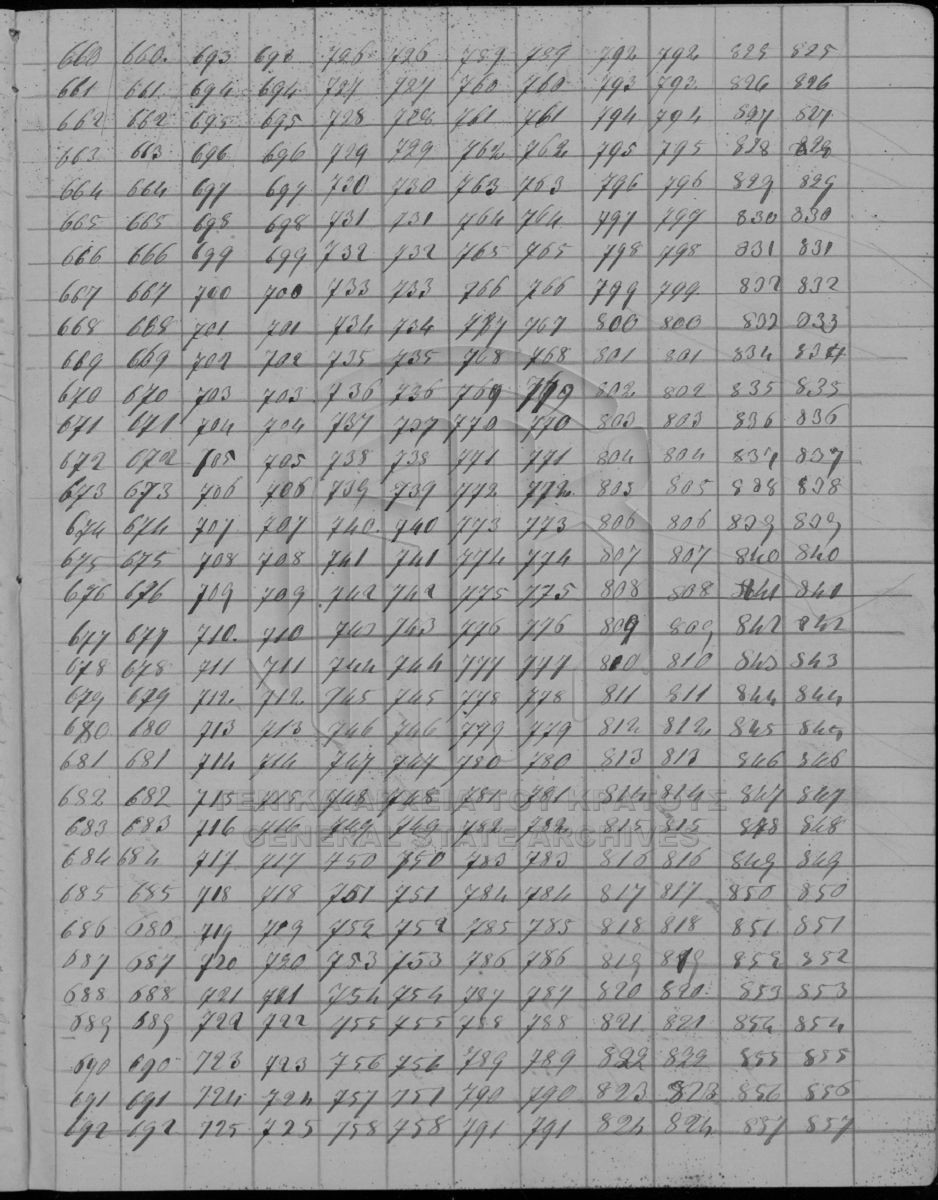 660 660. 693 693 726 726 759 759 792 792 825 825
661 661 694 694 727 727 760 760 793 793 826 826
662 662 695 695 728 728 761 761 794 794 827 827
663 663 696 696 729 729 762 762 795 795 828 828
664 664 697 697 730 730 763 763 796 796 829 829
665 665 698 698 731 731 764 764 797 797 830 830
666 666 699 699 732 732 765 765 798 798 831 831
667 667 700 700 733 733 766 766 799 799 832 832
668 668 701 701 734 734 767 767 800 800 833 833
669 669 702 702 735 735 768 768 801 801 834 834
670 670 703 703 736 736 769 769 802 802 835 835
671 671 704 704 737 737 770 770 803 803 836 836
672 672 705 705 738 738 771 771 804 804 837 837
673 673 706 706 739 739 772 772 805 805 838 838
674 674 707 707 740. 740 773 773 806 806 839 839
675 675 708 708 741 741 774 774 807 807 840 840
676 676 709 709 742 742 775 775 808 808 841 841
677 677 710. 710 743 743 776 776 809 809 842 842
678 678 711 711 744 744 777 777 810 810 843 843
679 679 712. 712. 745 745 778 778 811 811 844 844
680 680 713 713 746 746 779 779 812 812 845 845
681 681 714 714 747 747 780 780 813 813 846 846
682 682 715 715 748 748 781 781 814 814 847 847
ΓΕΝΙΚΑ ΑΡΧΕΙΑ ΤΟΥ ΚΡΑΤΟΥΣ
683 683 716 716 749 749 782 782 815 815 848 848
GENERAL STATE ARCHIVES
684 684 717 717 750 750 783 783 816 816 849 849
685 685 718 718 751 751 784 784 817 817 850 850
686 686 719 719 752 752 785 785 818 818 851 851
687 687 720 720 753 753 786 786 819 819 852 852
688 688 721 721 754 754 787 787 820 820. 853 853
689 689 722 722 755 755 788 788 821 821 854 854
690 690 723 723 756 756 789 789 822 822 855 855
691 691 724 724 757 757 790 790 823 823 856 856
692 692 725 725 758 758 791 791 824 824 857 857